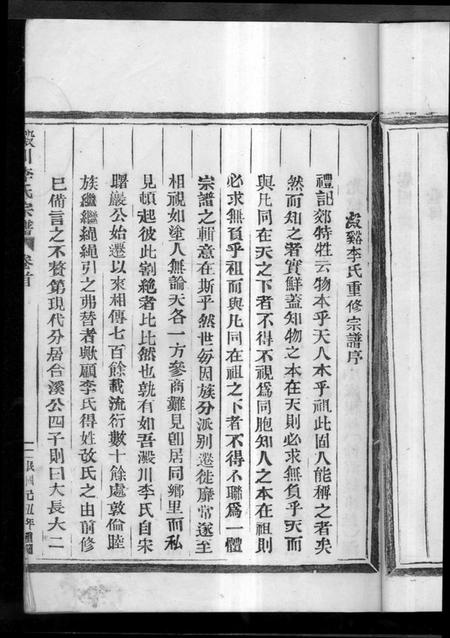 瀫谿李氏重修宗譜序
禮記郊特牲云物本乎天人本乎祖此固人能稱之者矣
然而知之者實鮮蓋知物之本在天則必求無負乎天而
與凡同在天之下者不得不視爲同胞知人之本在祖則
必求無負乎祖而與凡同在祖之下者不得不聯爲一體
宗譜之輯意在斯乎然世每因族分派別遷徙靡常遂至
相視如塗人無論天各一方參商難見卽居同鄉里而私
見頓起彼此割絶者比比然也孰有如吾瀫川李氏自宋
曙巖公始遷以來相傳七百餘載流衍數十餘處敦倫睦
族繼繼繩繩引之弗替者歟顧李氏得姓攺氏之由前修
已備言之不贅第現代分居合溪公四子則曰大長大二
瀫川李氏宗譜 卷首
民國己丑年重修